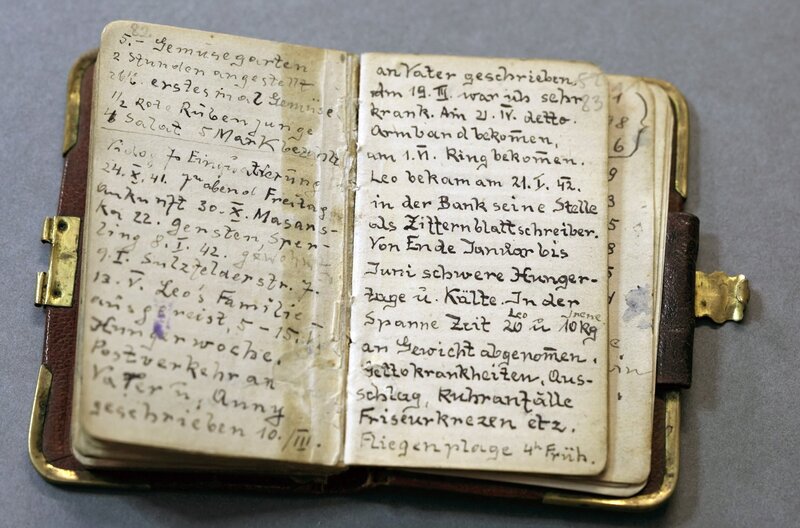 82.
5.- Gemüsegarten
2 Stunden angestellt
erstesmal Gemüse
1/2 rote Rüben junge
4 Salat 5 Mark bezahlt
24.X.41. abend Freitag
Ankunft 30.X. Masans-
ka 22. Gersten, Sper-
ling 8.I.42. gewohnt
9.I. Sulzfelderstr. 7.
13.V. Leo's Familie
ausgereist, 5-15.V.
Hungerwoche,
Postverkehr an
Vater u. Anny
geschrieben 10./III.
an Vater geschrieben,
Am 19.III. war ich sehr
krank. Am 21.IV. detto
Armband bekomen,
am 1.VI. Ring bekomen.
Leo bekam am 21.I.42.
in der Bank seine Stelle
als Zitternblattschreiber.
Von Ende Januar bis
Juni schwere Hunger-
tage u. Kälte. In der
Leo Irene
Spanne Zeit 20 u 10 kg
an Gewicht abgenomen.
Gettokrankheiten, Aus-
schlag, Ruhranfälle
Friseurkrezen etz.
Fliegenplage 4h Früh.